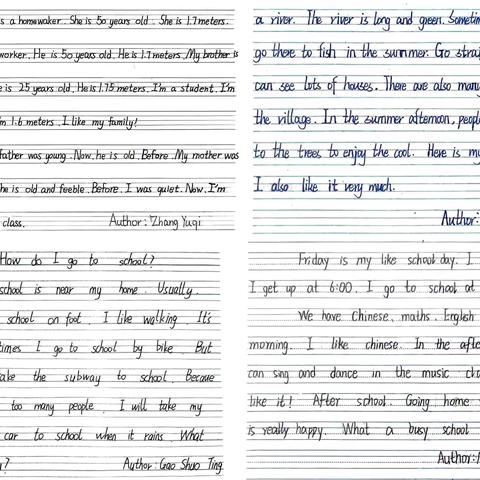 s a homemaker. She is 50 years old. She is 1.7 meters.
worker. He is 50 years old. He is 1.7 meters. My brother is
e is 25 years old. He is 1.75 meters. I'm a student. I'm
m 1.6 meters. I like my family!
father was young. Now. he is old. Before. My mother was
he is old and feeble. Before. I was quiet. Now. I'm
class. Author: Zhang Yuqi
a river. The river is long and green. Sometim
go there to fish in the summer. Go strai
can see lots of houses. There are also many
the village. In the summer afternoon, people
to the trees to enjoy the cool. Here is my
I also like it very much.
Author:
How do I go to school?
school is near my home. Usually.
school on foot. I like walking. It's
times I go to school by bike. But
take the subway to school. Because
too many people. I will take my
car to school when it rains. What
y? Author: Gao Shuo Ting
Friday is my like school day. I
I get up at 6:00. I go to school at
We have Chinese、maths、English
morning. I like chinese. In the afte
can sing and dance in the music cla
like it! After school. Going home
is really happy. What a busy school
Author: